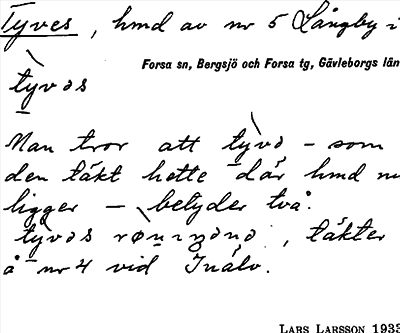 Tyves, hmd av nr 5 Långby i
Forsa sn, Bergsjö och Forsa tg, Gävleborgs län
tyvəs
Man tror att tyvə - som
den täkt hette där hmd nu
ligger - betyder två.
tyvəs , täkter
å nr 4 vid Inälv.
LARS LARSSON 1933